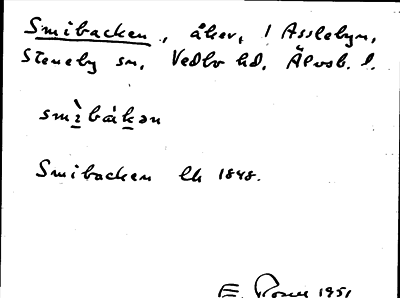 Smibacken, åker, 1 Asslebyn,
Steneby sn, Vedbo hd, Älvsb. l.
smìbàkən
Smibacken lh 1848.
E. Rosell 1951